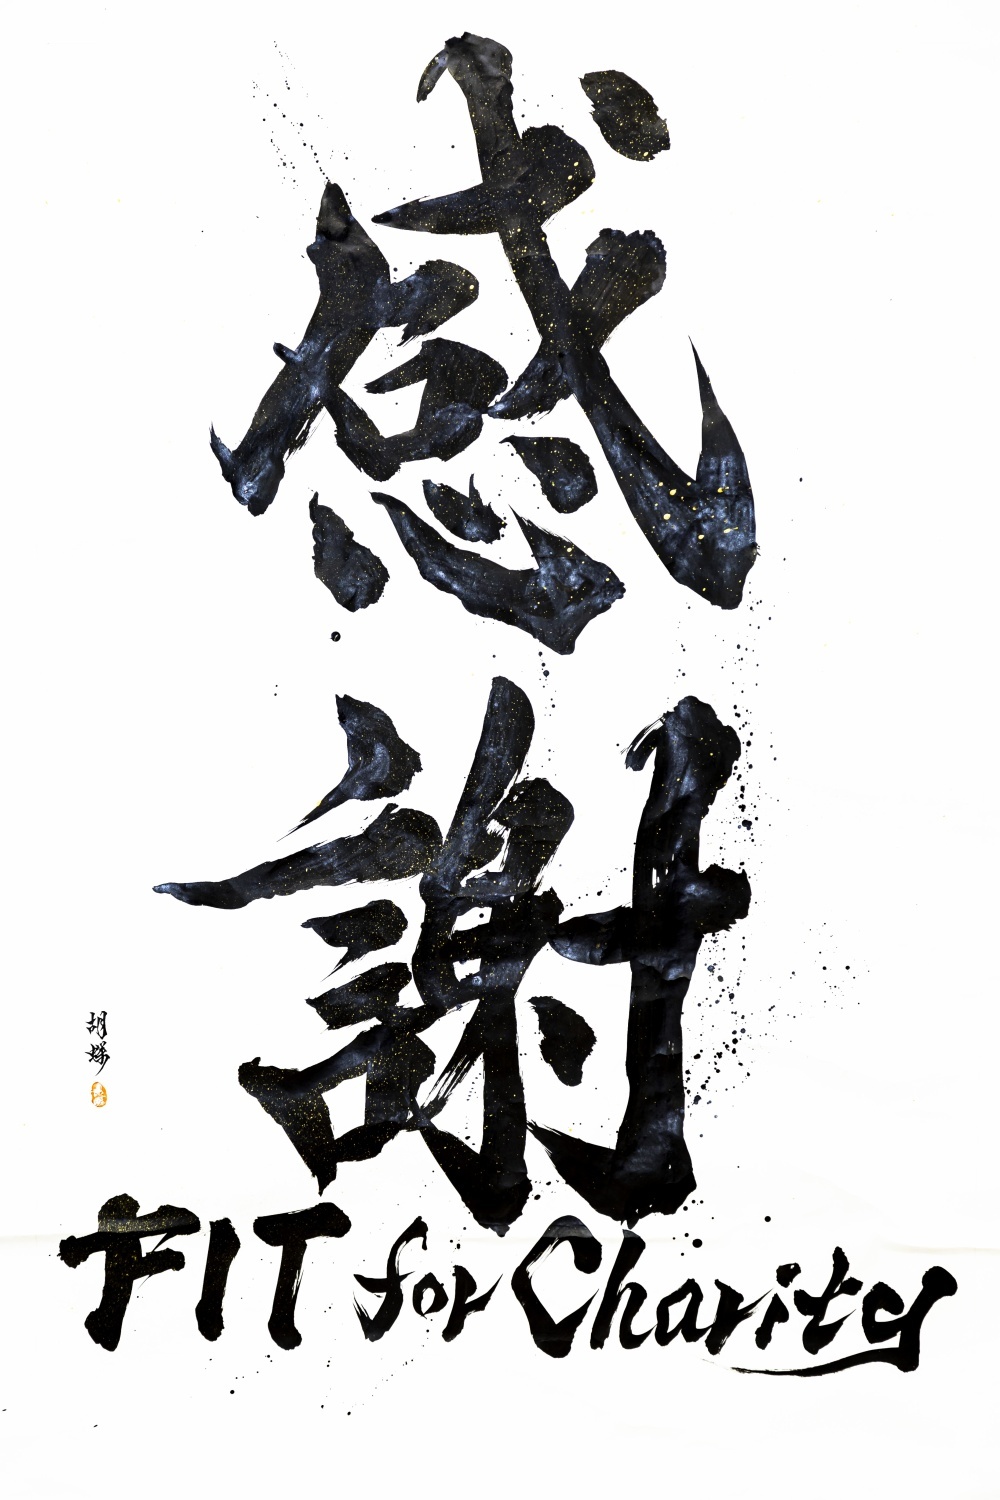 感謝
胡蝶
FIT for Charity